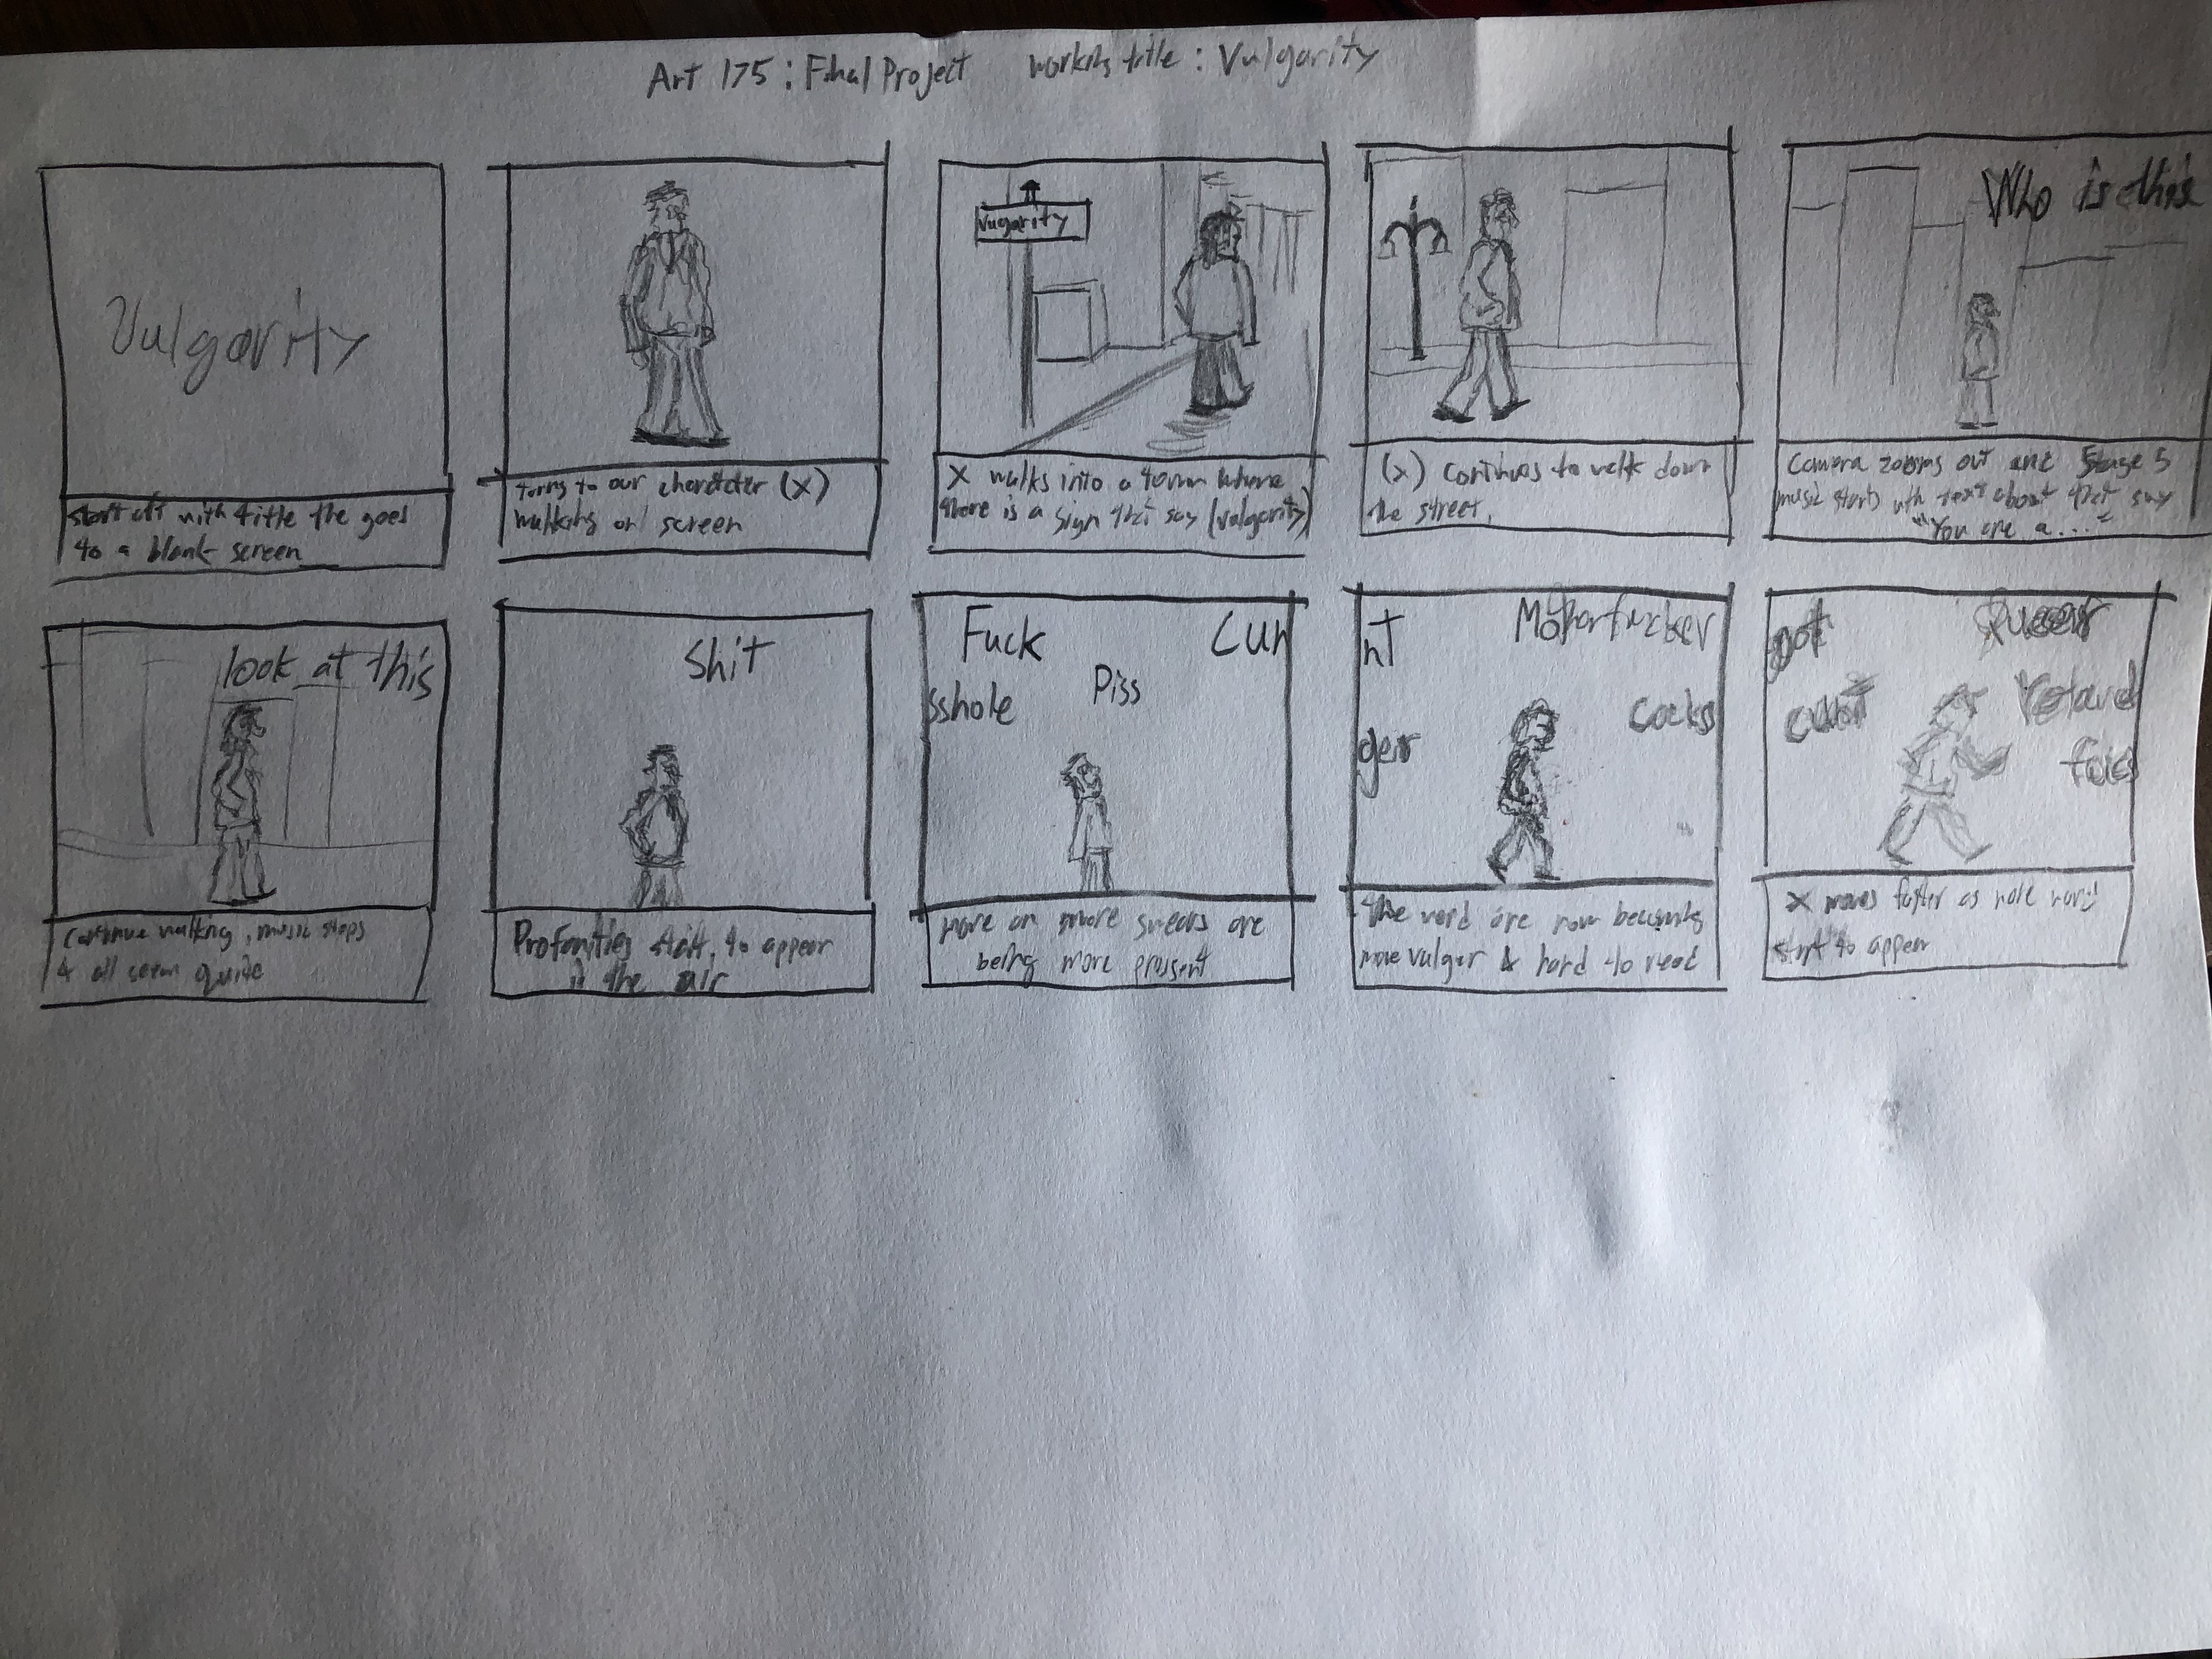 Art 175: Final Project working title: Vulgarity
Vulgarity
start off with title the goes
to a blank screen
turns to our charatcter (x)
walking on screen
Vugarity
X walks into a town where
there is a sign that say (vulgarity)
(x) continues to walk down
the street.
Who is this
Camera zooms out and Stage 5
music starts with text about that say
"You are a..."
look at this
continue walking, music stops
& all seem quite
Shit
Profanities start to appear
in the air
Fuck Cun
sshole Piss
more an more swears are
being more present
nt Motherfucker
ger Cocks
The word are now becoming
more vulgar & hard to read
got Queer
cunt retard
x moves faster as more word
start to appear